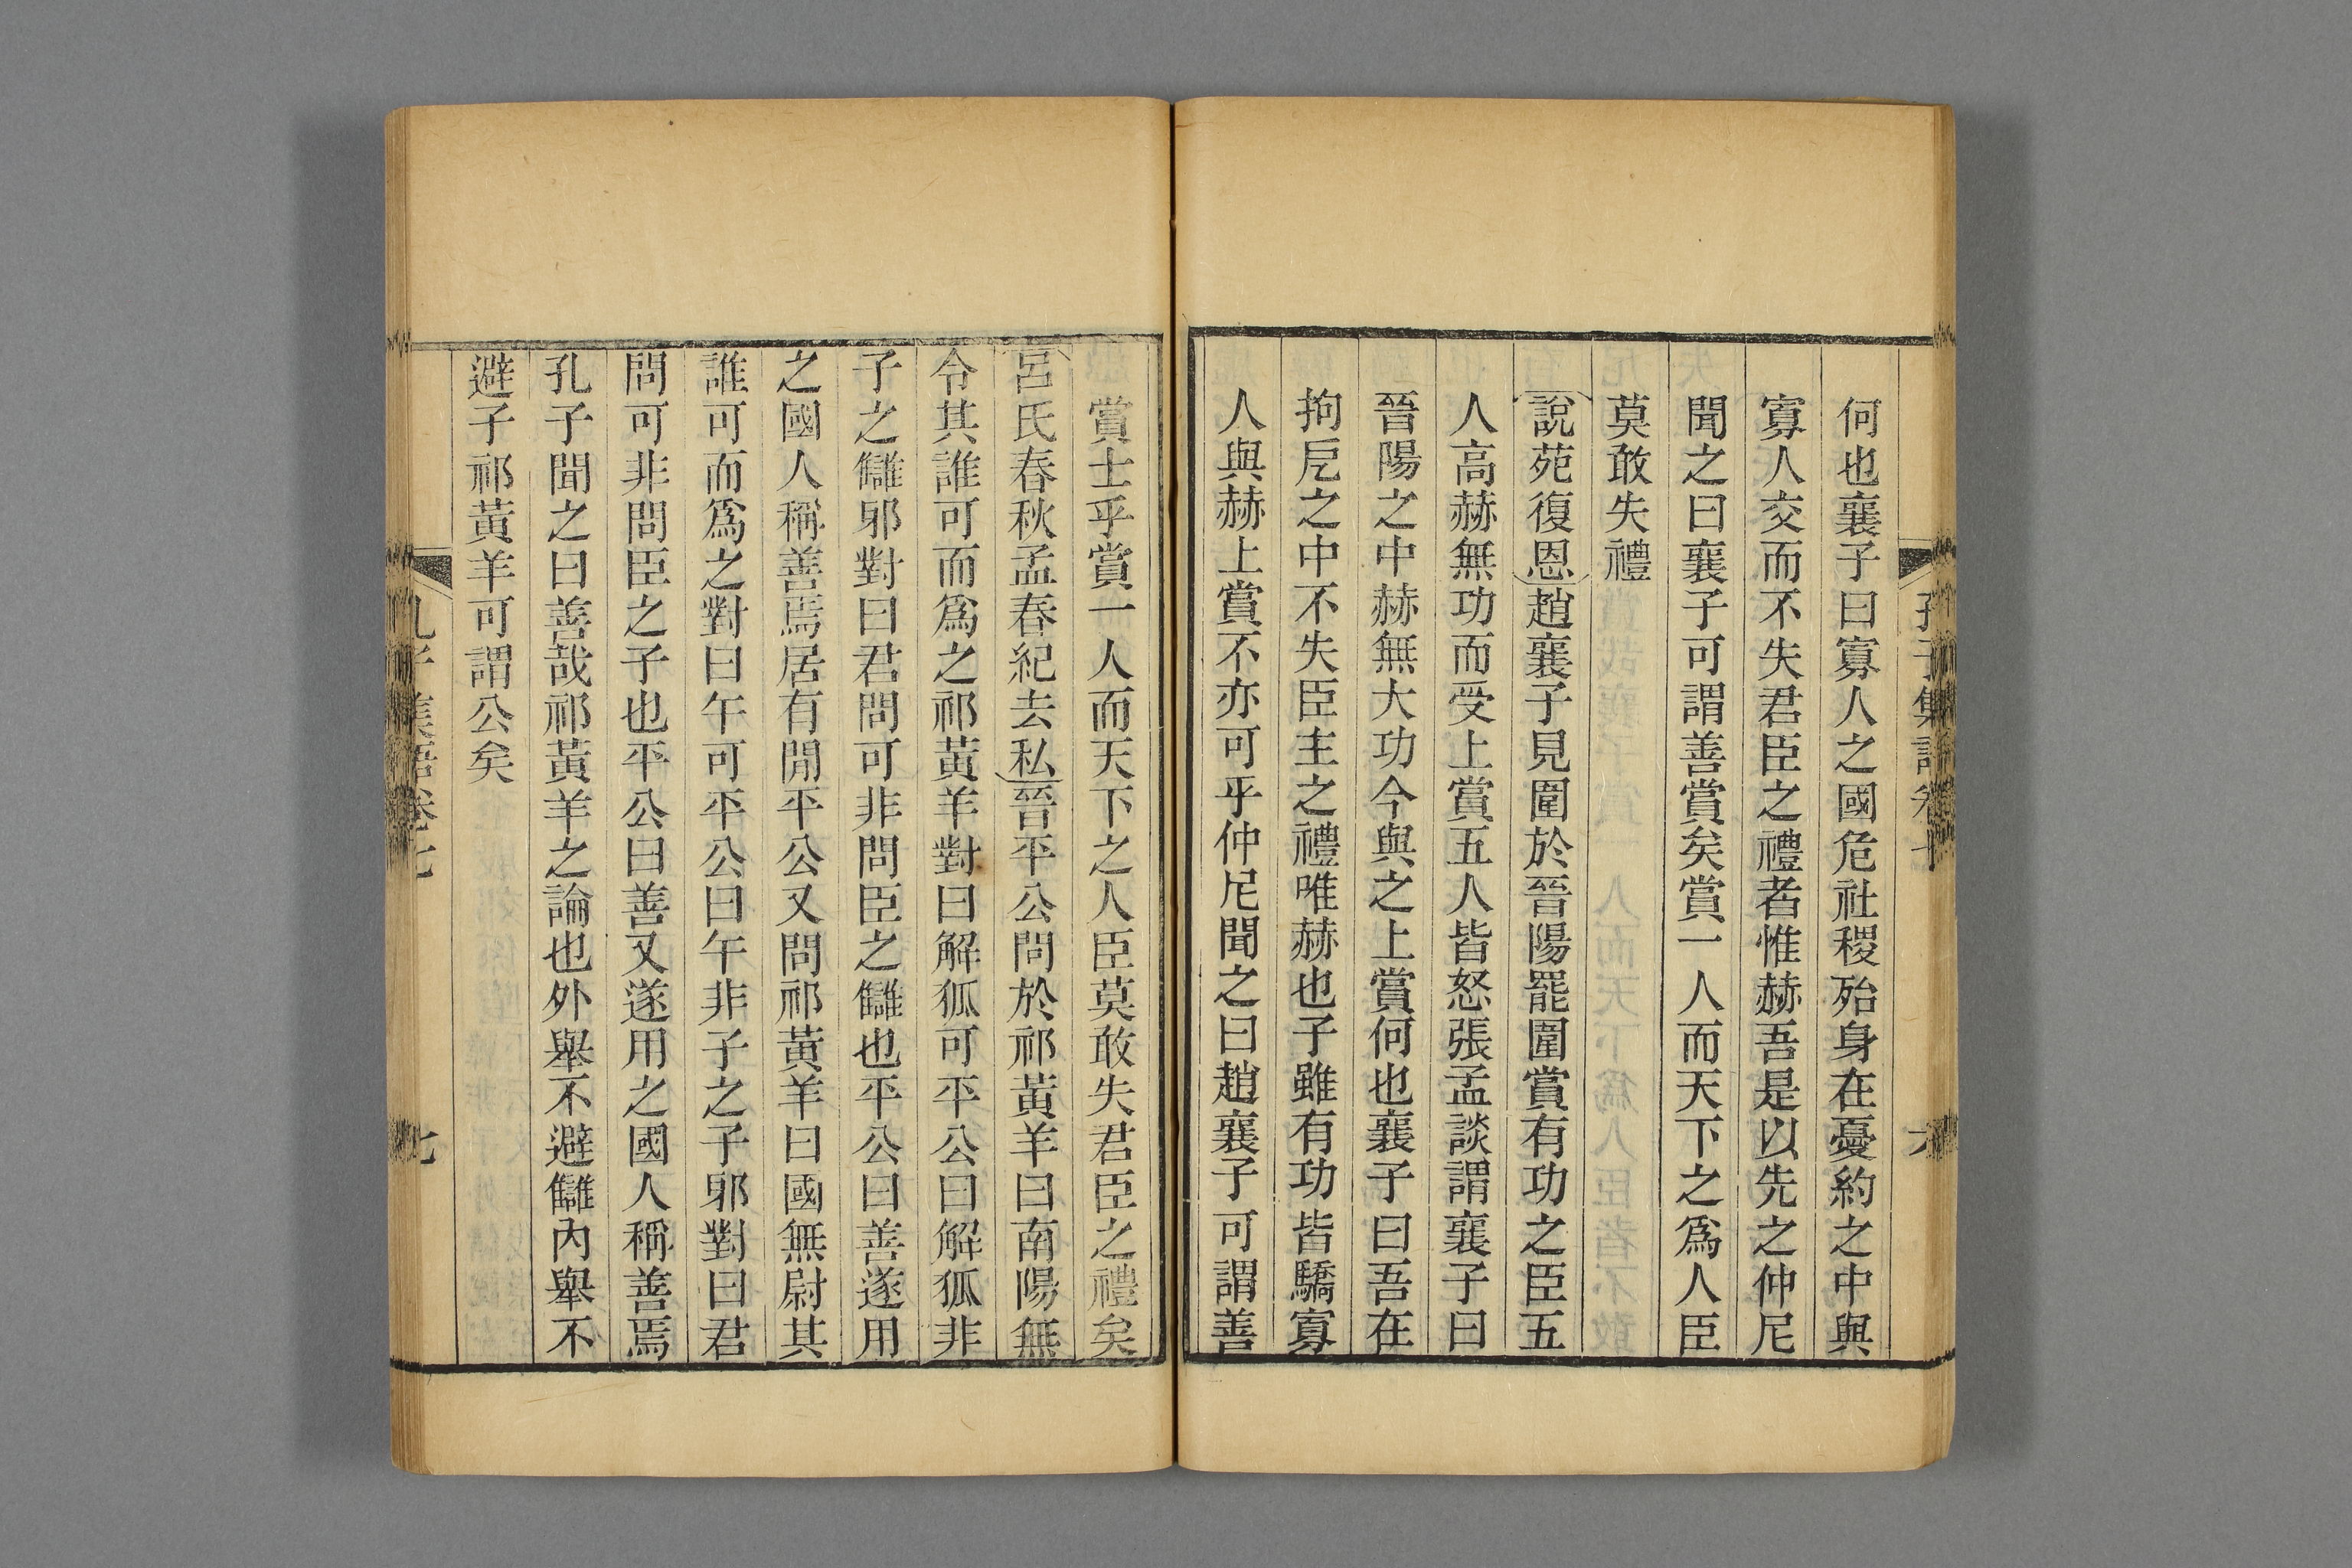 何也襄子曰寡人之國危社稷殆身在憂約之中與
寡人交而不失君臣之禮者惟赫吾是以先之仲尼
聞之曰襄子可謂善賞矣賞一人而天下之爲人臣
莫敢失禮
說苑復恩趙襄子見圍於晉陽罷圍賞有功之臣五
人高赫無功而受上賞五人皆怒張孟談謂襄子曰
晉陽之中赫無大功今與之上賞何也襄子曰吾在
拘厄之中不失臣主之禮唯赫也子雖有功皆驕寡
人與赫上賞不亦可乎仲尼聞之曰趙襄子可謂善
賞士乎賞一人而天下之人臣莫敢失君臣之禮矣
呂氏春秋孟春紀去私晉平公問於祁黃羊曰南陽無
令其誰可而爲之祁黃羊對曰解狐可平公曰解狐非
子之讎邪對曰君問可非問臣之讎也平公曰善遂用
之國人稱善焉居有閒平公又問祁黃羊曰國無尉其
誰可而爲之對曰午可平公曰午非子之子邪對曰君
問可非問臣之子也平公曰善又遂用之國人稱善焉
孔子聞之曰善哉祁黃羊之論也外舉不避讎內舉不
避子祁黃羊可謂公矣
孔子集語卷七
七